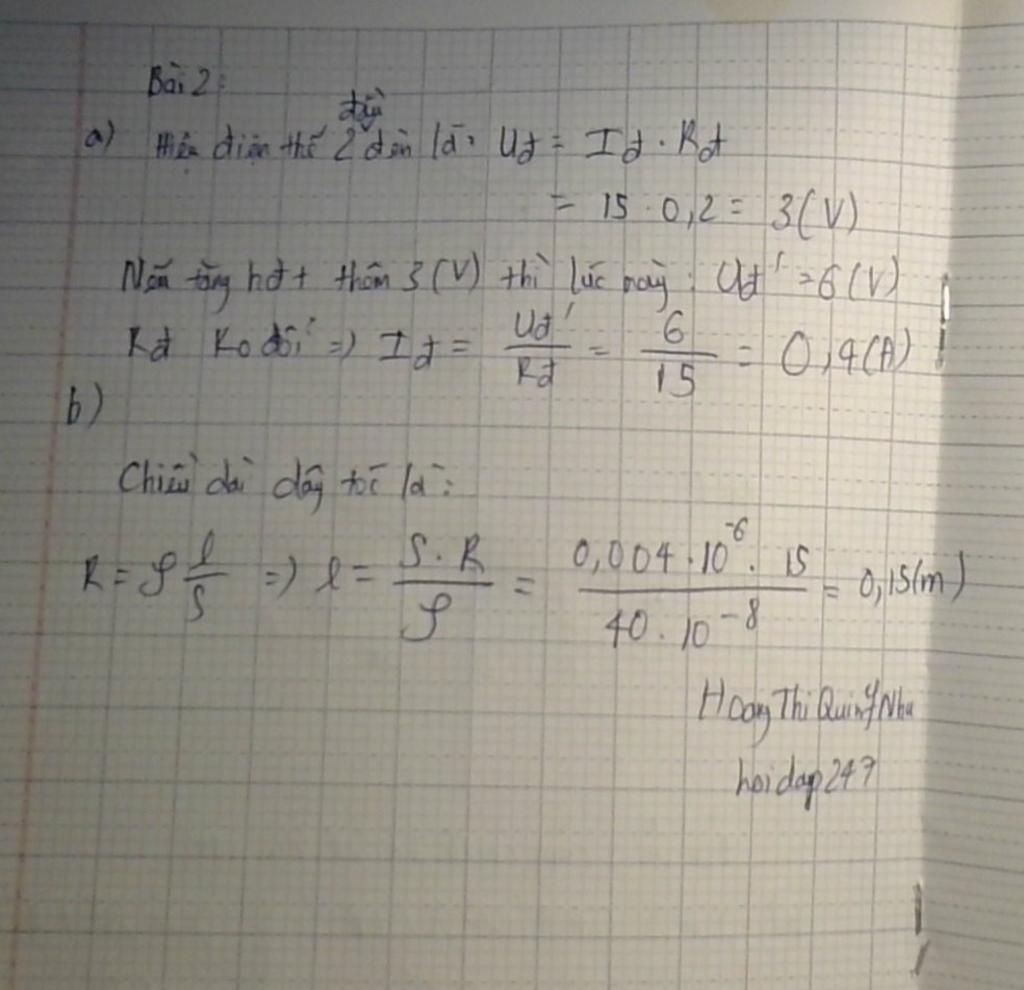 Bài 2:
a) Hiệu điện thế 2 đầu đèn là: Uđ = Iđ . Rđ
= 15 . 0,2 = 3(V)
Nếu tăng hđt thêm 3(V) thì lúc này: Uđ' = 6(V)
Rđ Ko đổi => Iđ = Uđ'/Rđ = 6/15 = 0,4(A)
b)
Chiều dài dây tóc là:
R = ρ l/S => l = S.R/ρ = 0,004.10^-6 . 15/40.10^-8 = 0,15(m)
Hoang Thi Quynh Nhu
hoidap247